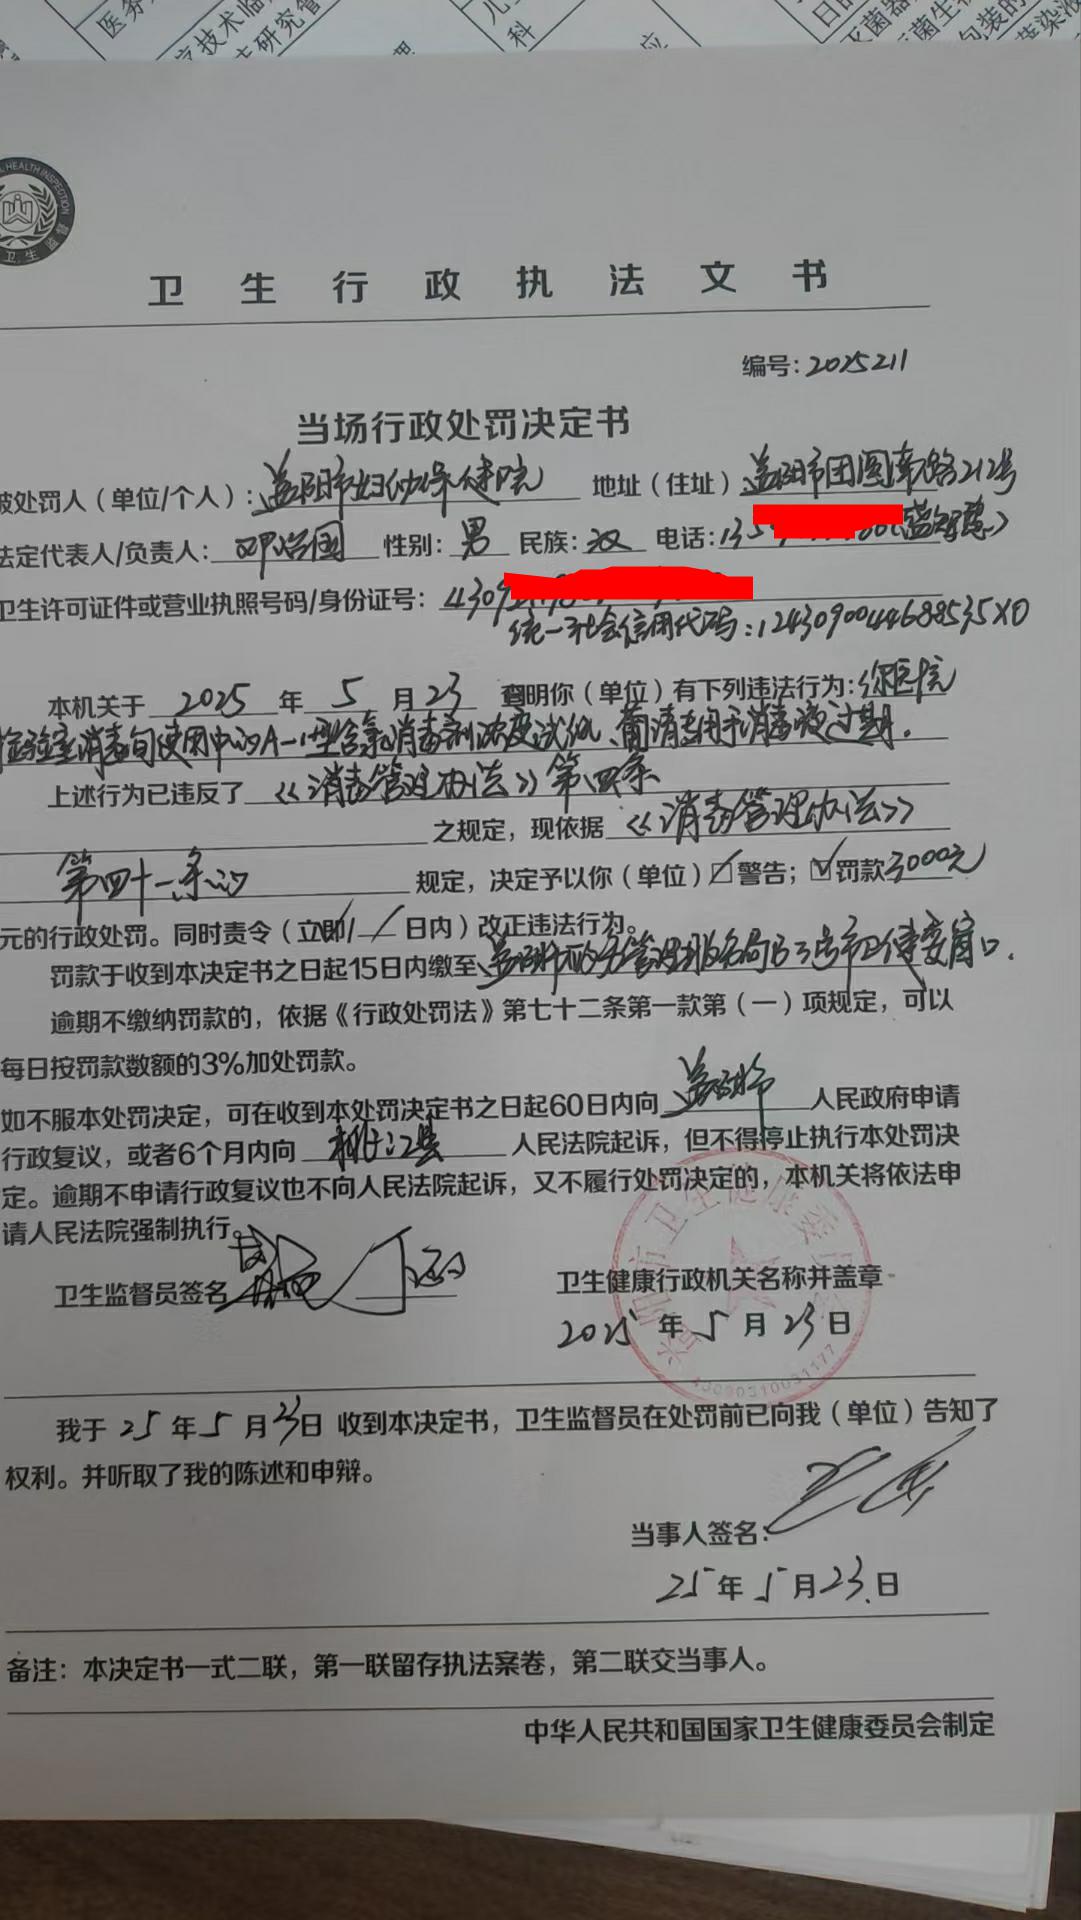 医务
技术临
研究管理
儿
科
应
日
灭菌器
菌生
包装的
染液
HEALTH INSPECTION
卫生监督
卫生行政执法文书
编号:2025211
当场行政处罚决定书
被处罚人（单位/个人）:益阳市妇幼保健院 地址（住址）益阳市团圆南路212号
法定代表人/负责人: 国 性别:男 民族:汉 电话:135
卫生许可证件或营业执照号码/身份证号:4309
统一社会信用代码:1243090044688535X0
本机关于 2025 年 5 月 23 查明你（单位）有下列违法行为:你医院
检验室消毒 使用中的A-1型含氯消毒剂浓度试纸、葡清专用于消毒液过期.
上述行为已违反了《消毒管理办法》第四条
之规定，现依据《消毒管理办法》
第四十一条的 规定，决定予以你（单位）☑警告；☑罚款3000元
元的行政处罚。同时责令（立即/ / 日内）改正违法行为。
罚款于收到本决定书之日起15日内缴至益阳市政务管理服务局 市卫健委窗口.
逾期不缴纳罚款的，依据《行政处罚法》第七十二条第一款第（一）项规定，可以
每日按罚款数额的3%加处罚款。
如不服本处罚决定，可在收到本处罚决定书之日起60日内向 益阳市 人民政府申请
行政复议，或者6个月内向 桃江县 人民法院起诉，但不得停止执行本处罚决
定。逾期不申请行政复议也不向人民法院起诉，又不履行处罚决定的，本机关将依法申
请人民法院强制执行。
卫生监督员签名 卫生健康行政机关名称并盖章
益阳市卫生健康委员会
2025 年 5 月 23 日
我于 25 年 5 月 23日 收到本决定书，卫生监督员在处罚前已向我（单位）告知了
权利。并听取了我的陈述和申辩。
当事人签名:
25 年 5 月 23.日
备注：本决定书一式二联，第一联留存执法案卷，第二联交当事人。
中华人民共和国国家卫生健康委员会制定